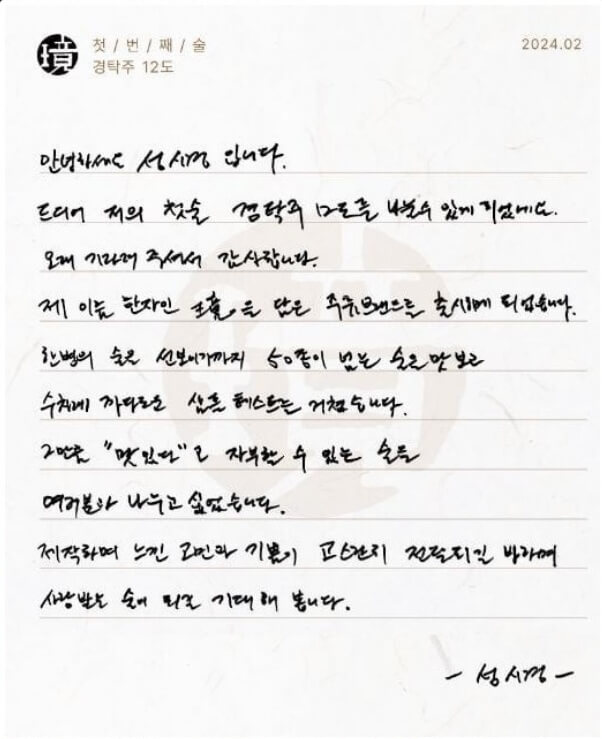 첫 / 번 / 째 / 술
경탁주 12도
2024.02
안녕하세요 성시경 입니다.
드디어 저의 첫술 경탁주 12도를 나눌수 있게 되었네요.
오래 기다려 주셔서 감사합니다.
제 이름 한자인 璄을 담은 주류브랜드를 출시하게 되었습니다.
한병의 술을 선보이기까지 50종이 넘는 술을 맛보고
수차례 까다로운 샘플 테스트를 거쳤습니다.
그만큼 "맛있다"로 자부할 수 있는 술을
여러분과 나누고 싶었습니다.
제작하며 느낀 고민과 기쁨이 고스란히 전달되길 바라며
사랑받는 술이 되길 기대해 봅니다.
- 성시경 -